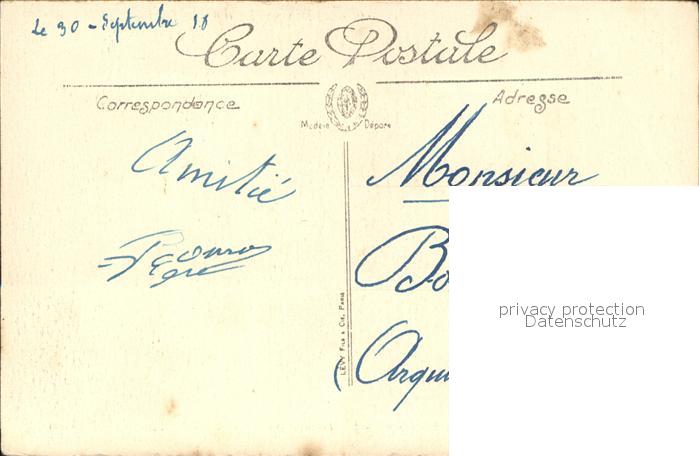 Le 30 - Septembre 18
Carte Postale
Correspondance
Adresse
Modèle Déposé
Amitié
Monsieur
LEVY FILS & CIE, PARIS
privacy protection
Datenschutz